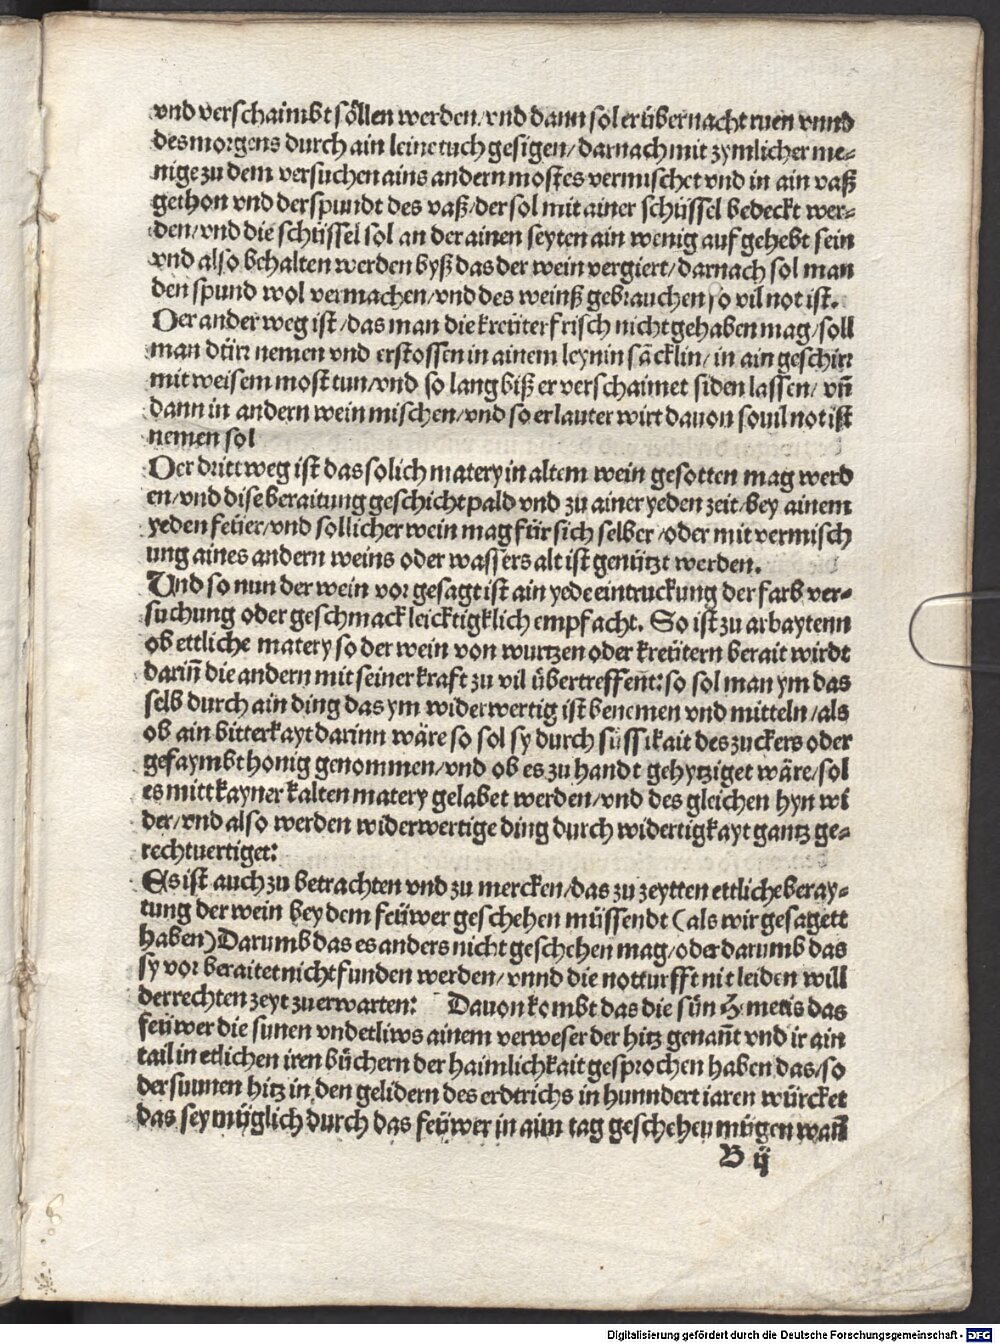 vnd verschaimbt söllen werden/vnd dann sol er übernacht ruen vnnd
des morgens durch ain leine tuch gesigen/darnach mit zymlicher me-
nige zu dem versuchen ains andern mostes vermischet vnd in ain vaß
gethon vnd der spundt des vaß/der sol mit ainer schüssel bedeckt wer-
den/vnd die schüssel sol an der ainen seyten ain wenig auf gehebt sein
vnd also behalten werden byß das der wein vergiert/darnach sol man
den spund wol vermachen/vnd des weinß gebrauchen so vil not ist.
Der ander weg ist/das man die kreüter frisch nicht gehaben mag/soll
man dürr nemen vnd erstossen in ainem leynin säcklin/in ain geschirr
mit weisem most tun/vnd so lang biß er verschaimet siden lassen/vñ
dann in andern wein mischen/vnd so er lauter wirt dauon souil not ist
nemen sol
Der dritt weg ist das solich matery in altem wein gesotten mag werd
en/vnd dise beraitung geschicht pald vnd zu ainer yeden zeit/bey ainem
yeden feüer/vnd sollicher wein mag für sich selber/oder mit vermisch
ung aines andern weins oder wassers alt ist genützt werden.
Und so nun der wein vor gesagt ist ain yede eintruckung der farb ver-
suchung oder geschmack leicktigklich empfacht. So ist zu arbaytenn
ob ettliche matery so der wein von wurtzen oder kreütern berait wirdt
dariñ die andern mit seiner kraft zu vil übertreffent: so sol man ym das
selb durch ain ding das ym widerwertig ist benemen vnd mitteln/als
ob ain bitterkayt darinn wäre so sol sy durch süssikait des zuckers oder
gefaymbt honig genommen/vnd ob es zu handt gehytziget wäre/sol
es mitt kayner kalten matery gelabet werden/vnd des gleichen hyn wi
der/vnd also werden widerwertige ding durch widertigkayt gantz ge-
rechtuertiget:
Es ist auch zu betrachten vnd zu mercken/das zu zeytten ettliche beray-
tung der wein bey dem feüwer geschehen müssendt (als wir gesagett
haben) Darumb das es anders nicht geschehen mag/oder darumb das
sy vor beraitet nicht funden werden/vnnd die notturfft nit leiden will
der rechten zeyt zu erwarten: Dauon kombt das die sün Hermetis das
feüwer die sunen vnd etliws ainem verweser der hitz genañt vnd ir ain
tail in etlichen iren büchern der haimlichkait gesprochen haben das/so
der sunnen hitz in den gelidern des erdtrichs in hunndert iaren würcket
das sey müglich durch das feüwer in aim tag geschehen mügen wañ
B ij
Digitalisierung gefördert durch die Deutsche Forschungsgemeinschaft - DFG